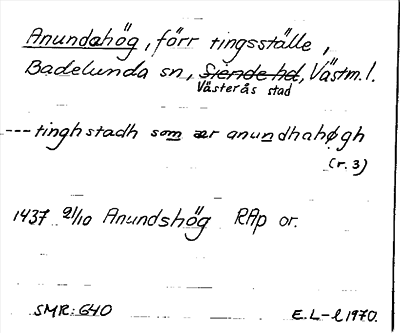 Anundahög, förr tingsställe,
Badelunda sn, Siende hd, Västm. l.
Västerås stad
---tinghstadh som ær anundhahøgh
(r. 3)
1437 21/10 Anundshög RAp or.
SMR: 640
E. L-l 1970.